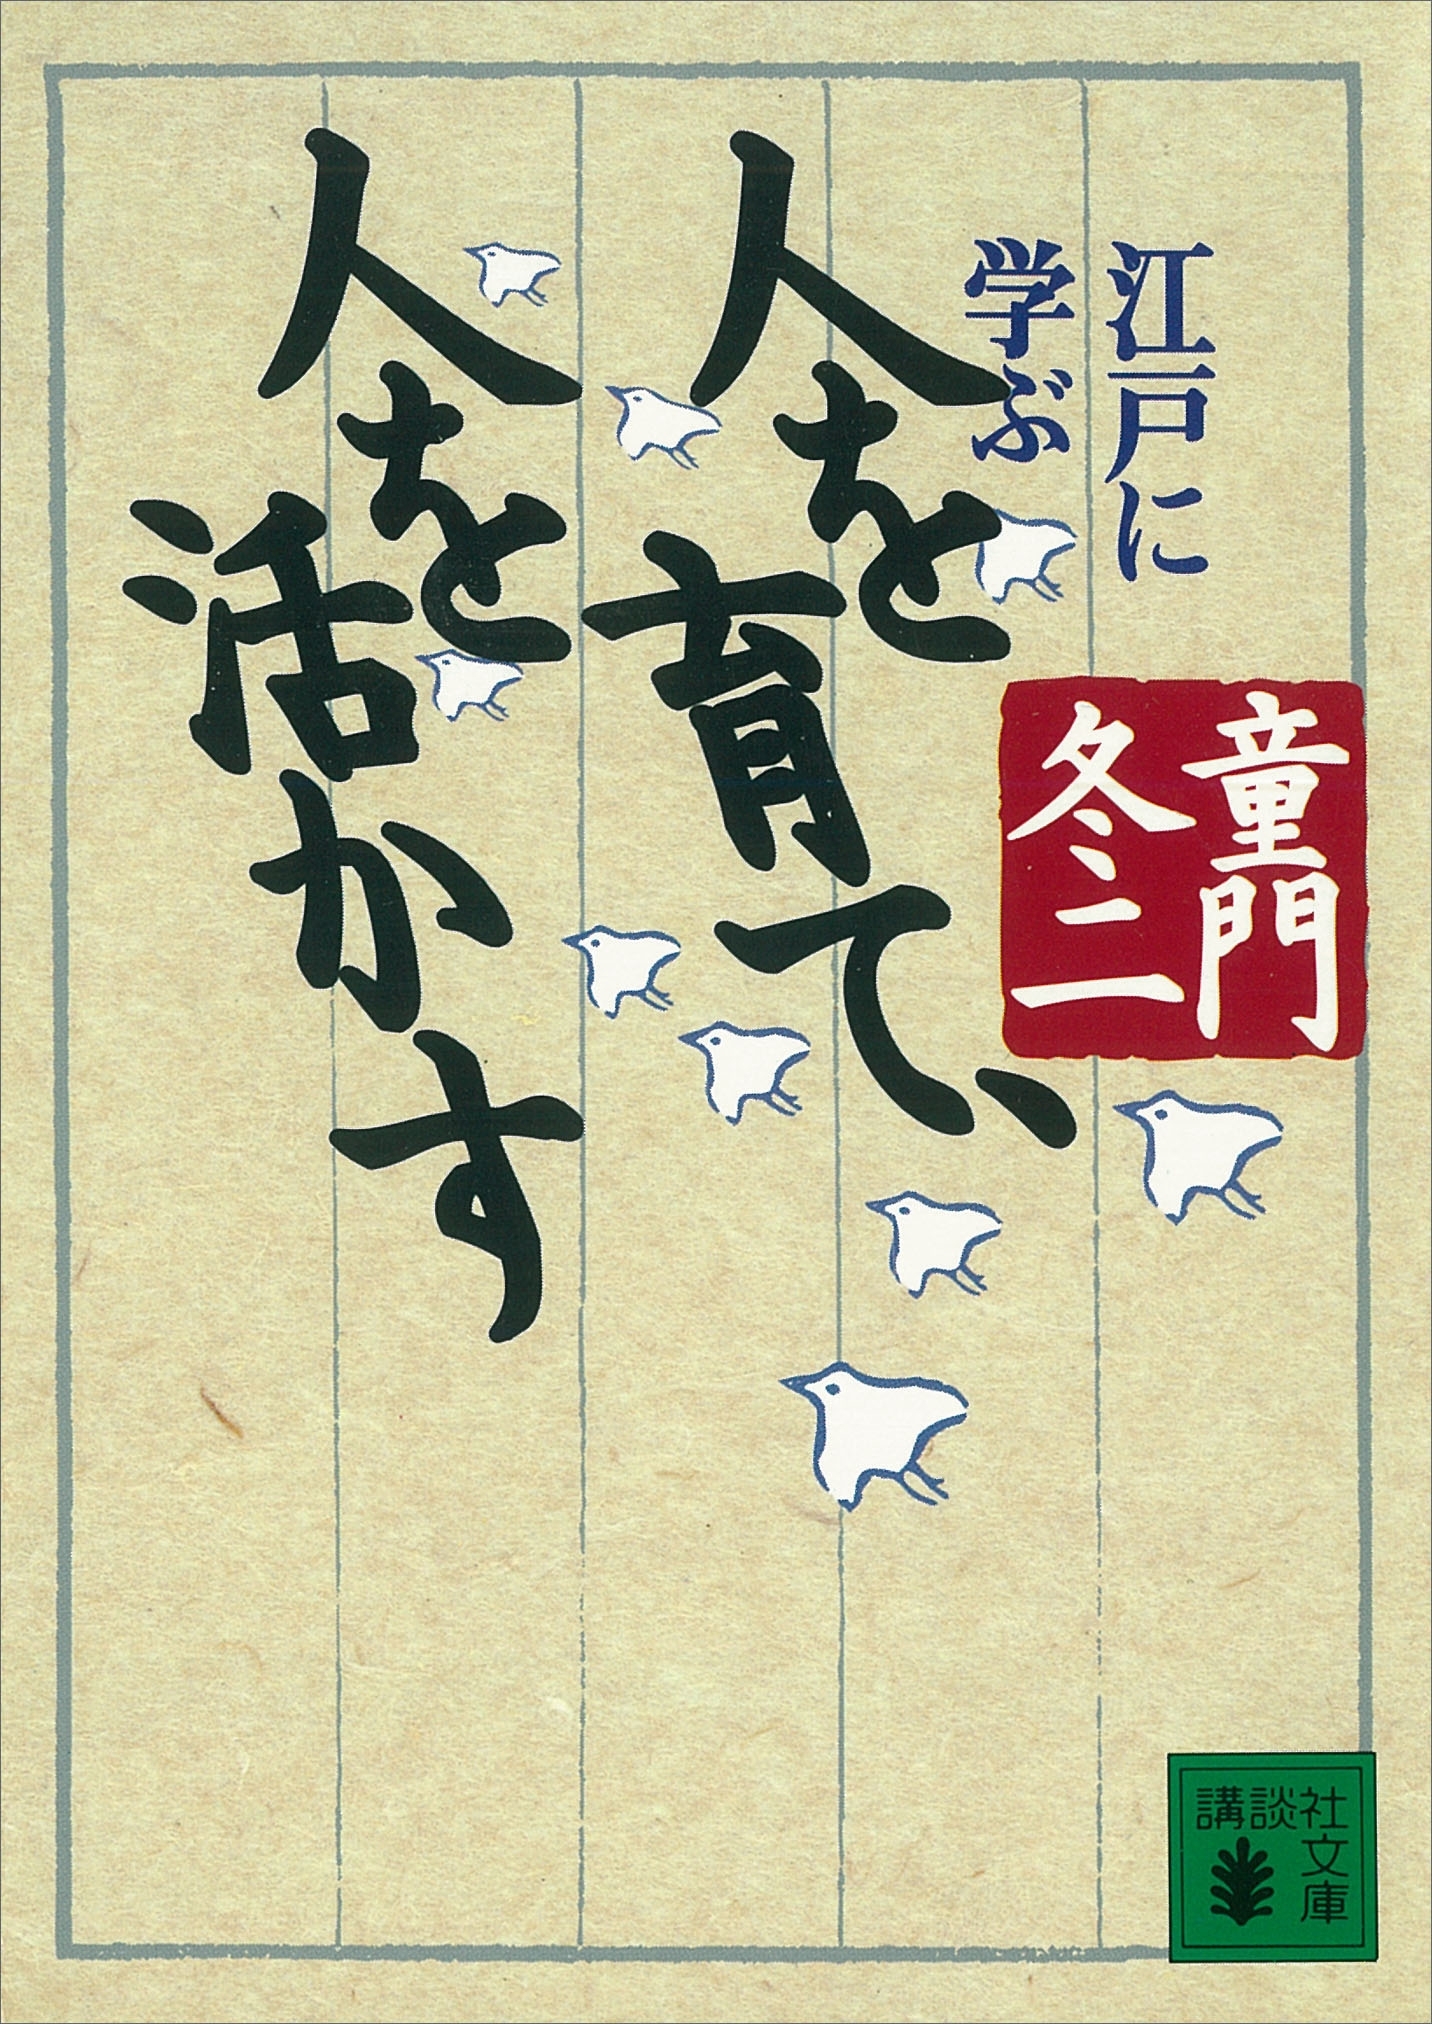 江戸に
学ぶ
人を育て、
人を活かす
童門
冬二
講談社
文庫